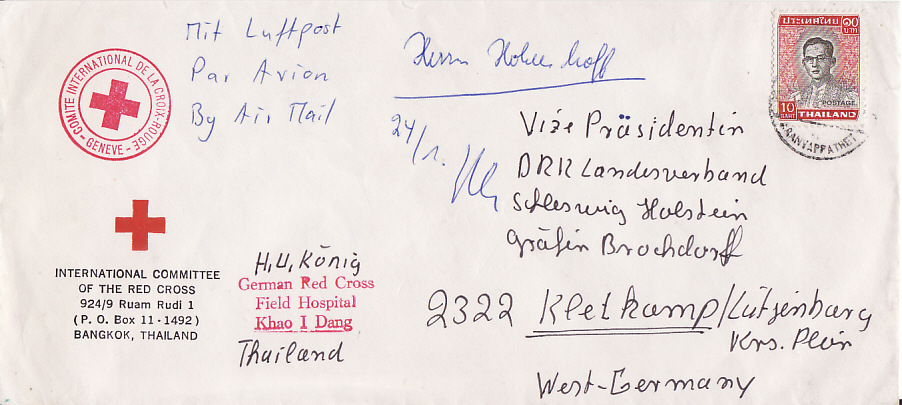 Mit Luftpost
Par Avion
By Air Mail
COMITE INTERNATIONAL DE LA CROIX-ROUGE
- GENEVE -
INTERNATIONAL COMMITTEE
OF THE RED CROSS
924/9 Ruam Rudi 1
(P. O. Box 11-1492)
BANGKOK, THAILAND
H.U. König
German Red Cross
Field Hospital
Khao I Dang
Thailand
Herrn
24/1.
ประเทศไทย
๑๐
บาท
POSTAGE
10
BAHT
THAILAND
Vize Präsidentin
DRK Landesverband
Schleswig Holstein
Gräfin Brochdorff
2322 Kletkamp/Lütjenburg
Krs. Plön
West-Germany